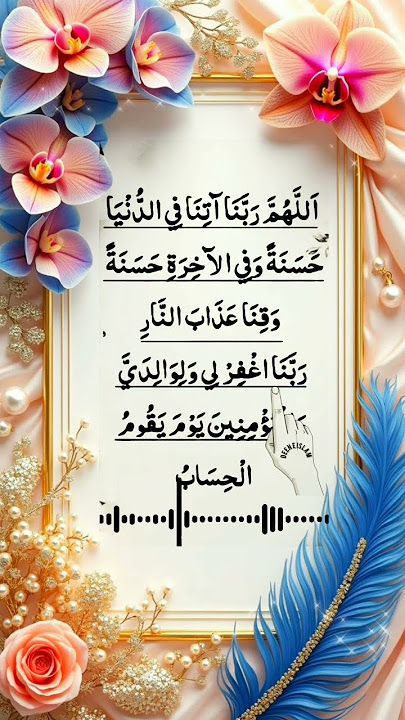 اَللَّهُمَّ رَبَّنَا آتِنَا فِي الدُّنْيَا
حَسَنَةً وَفِي الآخِرَةِ حَسَنَةً
وَقِنَا عَذَابَ النَّارِ
رَبَّنَا اغْفِرْ لِي وَلِوَالِدَيَّ
يَوْمَ يَقُومُ
الْحِسَابُ
DEENEISLAM